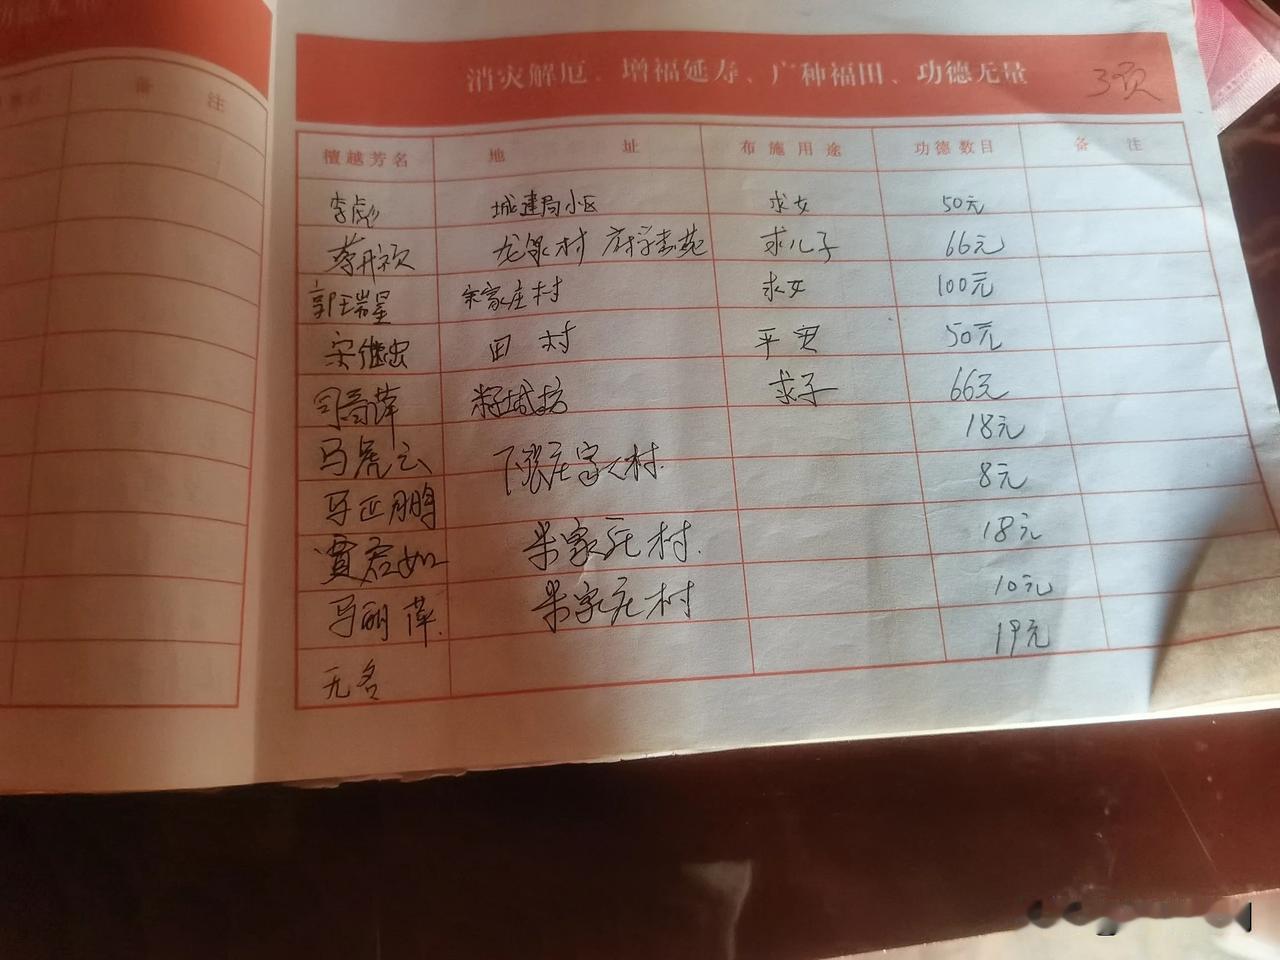 功德无
备 注
消灾解厄、增福延寿、广种福田、功德无量 3页
檀越芳名 地 址 布施用途 功德数目 备 注
李彪 城建局小区 求女 50元
龙泉村 求儿子 66元
郭瑞星 宋家庄村 求女 100元
宋继忠 田村 平安 50元
司 萍 求子 66元
马虎云 下张庄 村 18元
马正鹏 8元
贾君如 朱家庄村 18元
马丽萍 朱家庄村 10元
无名 19元